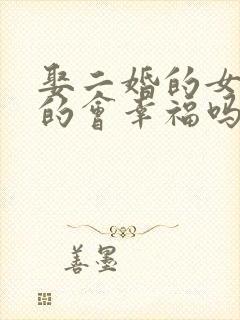 娶二婚的女
的會幸福吗
善墨